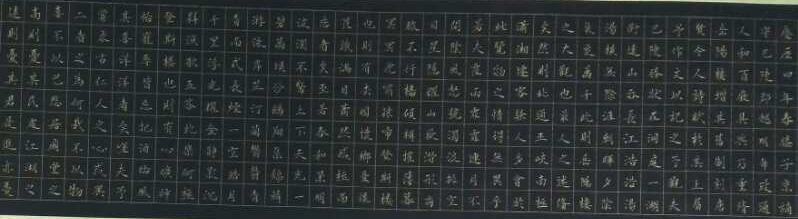 慶曆四年春滕子京謫
守巴陵郡越明年政通
人和百廢具興乃重修
岳陽樓增其舊制刻唐
賢今人詩賦於其上屬
予作文以記之予觀夫
巴陵勝狀在洞庭一湖
銜遠山吞長江浩浩湯
湯橫無際涯朝暉夕陰
氣象萬千此則岳陽樓
之大觀也前人之述備
矣然則北通巫峽南極
瀟湘遷客騷人多會於
此覽物之情得無異乎
若夫霪雨霏霏連月不
開陰風怒號濁浪排空
日星隱曜山岳潛形商
旅不行檣傾楫摧薄暮
冥冥虎嘯猿啼登斯樓
也則有去國懷鄉憂讒
畏譏滿目蕭然感極而
悲者矣至若春和景明
波瀾不驚上下天光一
碧萬頃沙鷗翔集錦鱗
游泳岸芷汀蘭郁郁青
青而或長煙一空皓月
千里浮光躍金靜影沉
璧漁歌互答此樂何極
登斯樓也則有心曠神
怡寵辱皆忘把酒臨風
其喜洋洋者矣嗟夫予
嘗求古仁人之心或異
二者之為何哉不以物
喜不以己悲居廟堂之
高則憂其民處江湖之
遠則憂其君是進亦憂